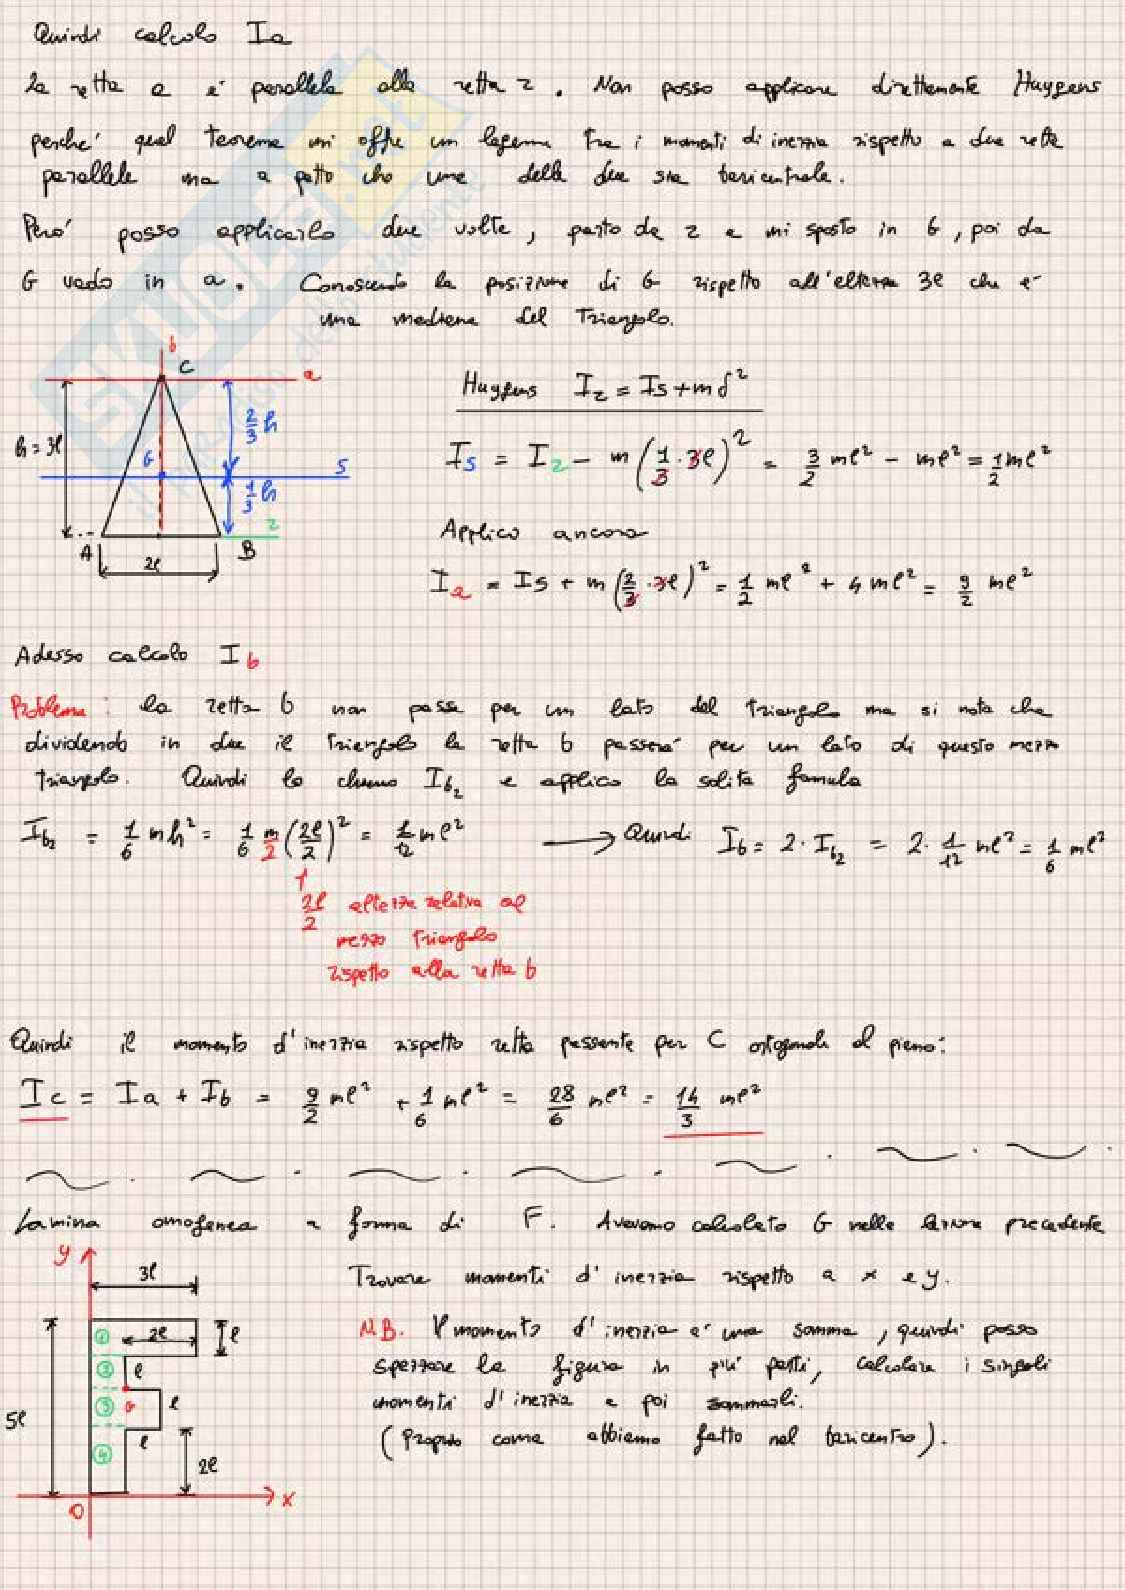 Quindi calcolo Ia
La retta a è parallela alla retta z. Non posso applicare direttamente Huygens
perché quel teorema mi offre un legame tra i momenti di inerzia rispetto a due rette
parallele ma a patto che una delle due sia baricentrale.
Però posso applicarlo due volte, parto da z e mi sposto in G, poi da
G vado in a. Conoscendo la posizione di G rispetto all'altezza 3l che è
una mediana del triangolo.
b
C
a
h = 3l
2/3 h
G
s
1/3 h
z
A
B
2l
Huygens Iz = Is + mδ²
Is = Iz - m(1/3 · 3l)² = 3/2 ml² - ml² = 1/2 ml²
Applico ancora
Ia = Is + m(2/3 · 3l)² = 1/2 ml² + 4ml² = 9/2 ml²
Adesso calcolo Ib
Problema: la retta b non passa per un lato del triangolo ma si nota che
dividendo in due il triangolo la retta b passerà per un lato di questo mezzo
triangolo. Quindi lo chiamo Ib₂ e applico la solita formula
Ib₂ = 1/6 mh² = 1/6 m/2 (2l/2)² = 1/12 ml² → Quindi Ib = 2·Ib₂ = 2·1/12 ml² = 1/6 ml²
2l/2 altezza relativa al
mezzo triangolo
rispetto alla retta b
Quindi il momento d'inerzia rispetto retta passante per C ortogonale al piano:
Ic = Ia + Ib = 9/2 ml² + 1/6 ml² = 28/6 ml² = 14/3 ml²
Lamina omogenea a forma di F. Avevamo calcolato G nella lezione precedente
Trovare momenti d'inerzia rispetto a x e y.
N.B. Il momento d'inerzia è una somma, quindi posso
spezzare la figura in più parti, calcolare i singoli
momenti d'inerzia e poi sommarli.
(Proprio come abbiamo fatto nel baricentro).
y
3l
① 2l l
② l
③ G l
5l
④ l 2l
O
x